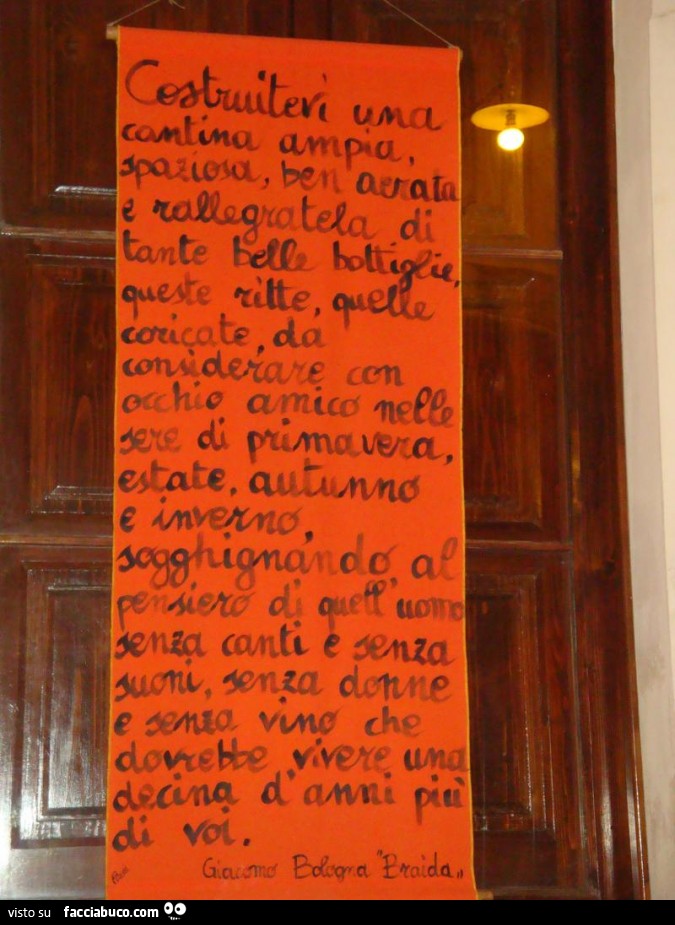 Costruitevi una
cantina ampia,
spaziosa, ben aerata
e rallegratela di
tante belle bottiglie,
queste ritte, quelle
coricate, da
considerare con
occhio amico nelle
sere di primavera,
estate, autunno
e inverno,
sogghignando al
pensiero di quell'uomo
senza canti e senza
suoni, senza donne
e senza vino che
dovrebbe vivere una
decina d'anni più
di voi.
Giacomo Bologna "Braida"
visto su facciabuco.com